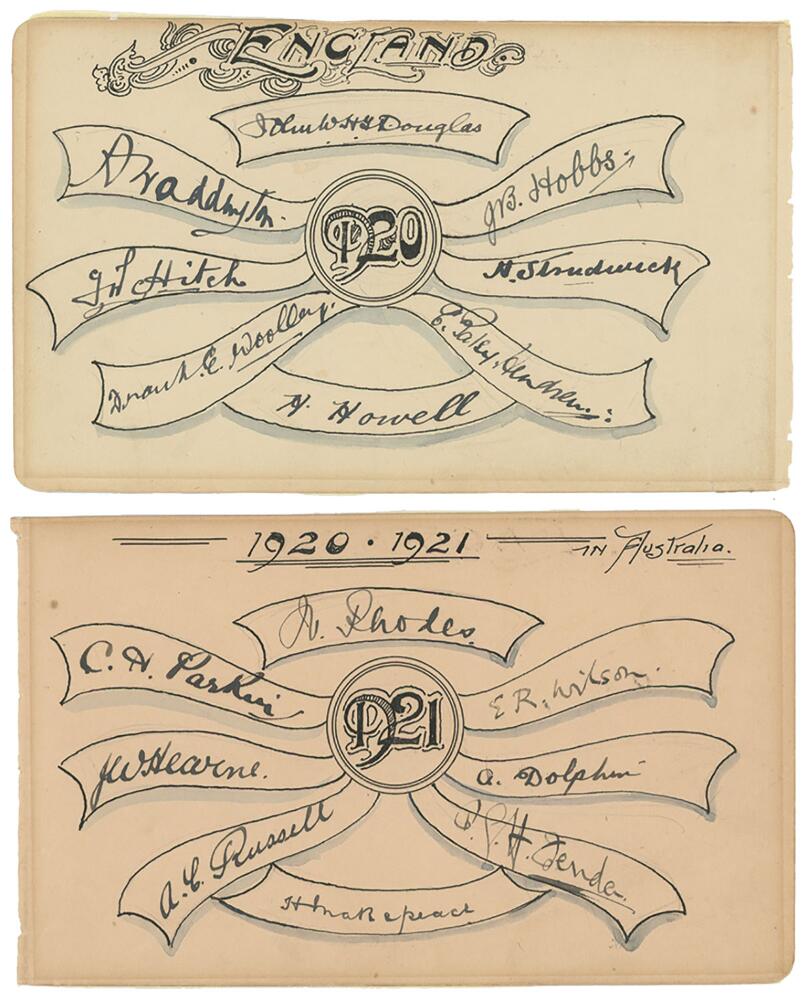 ENGLAND.
John W.H.T. Douglas
A Waddington.
J.B. Hobbs.
1920
J W Hitch
H. Strudwick
Frank. E. Woolley.
E. Patsy. Hendren.
H. Howell
1920 · 1921
IN Australia.
W. Rhodes.
C. H. Parkin
E R. Wilson.
1921
JW Hearne.
A. Dolphin
A. C. Russell
P. G. H. Fender.
H Makepeace